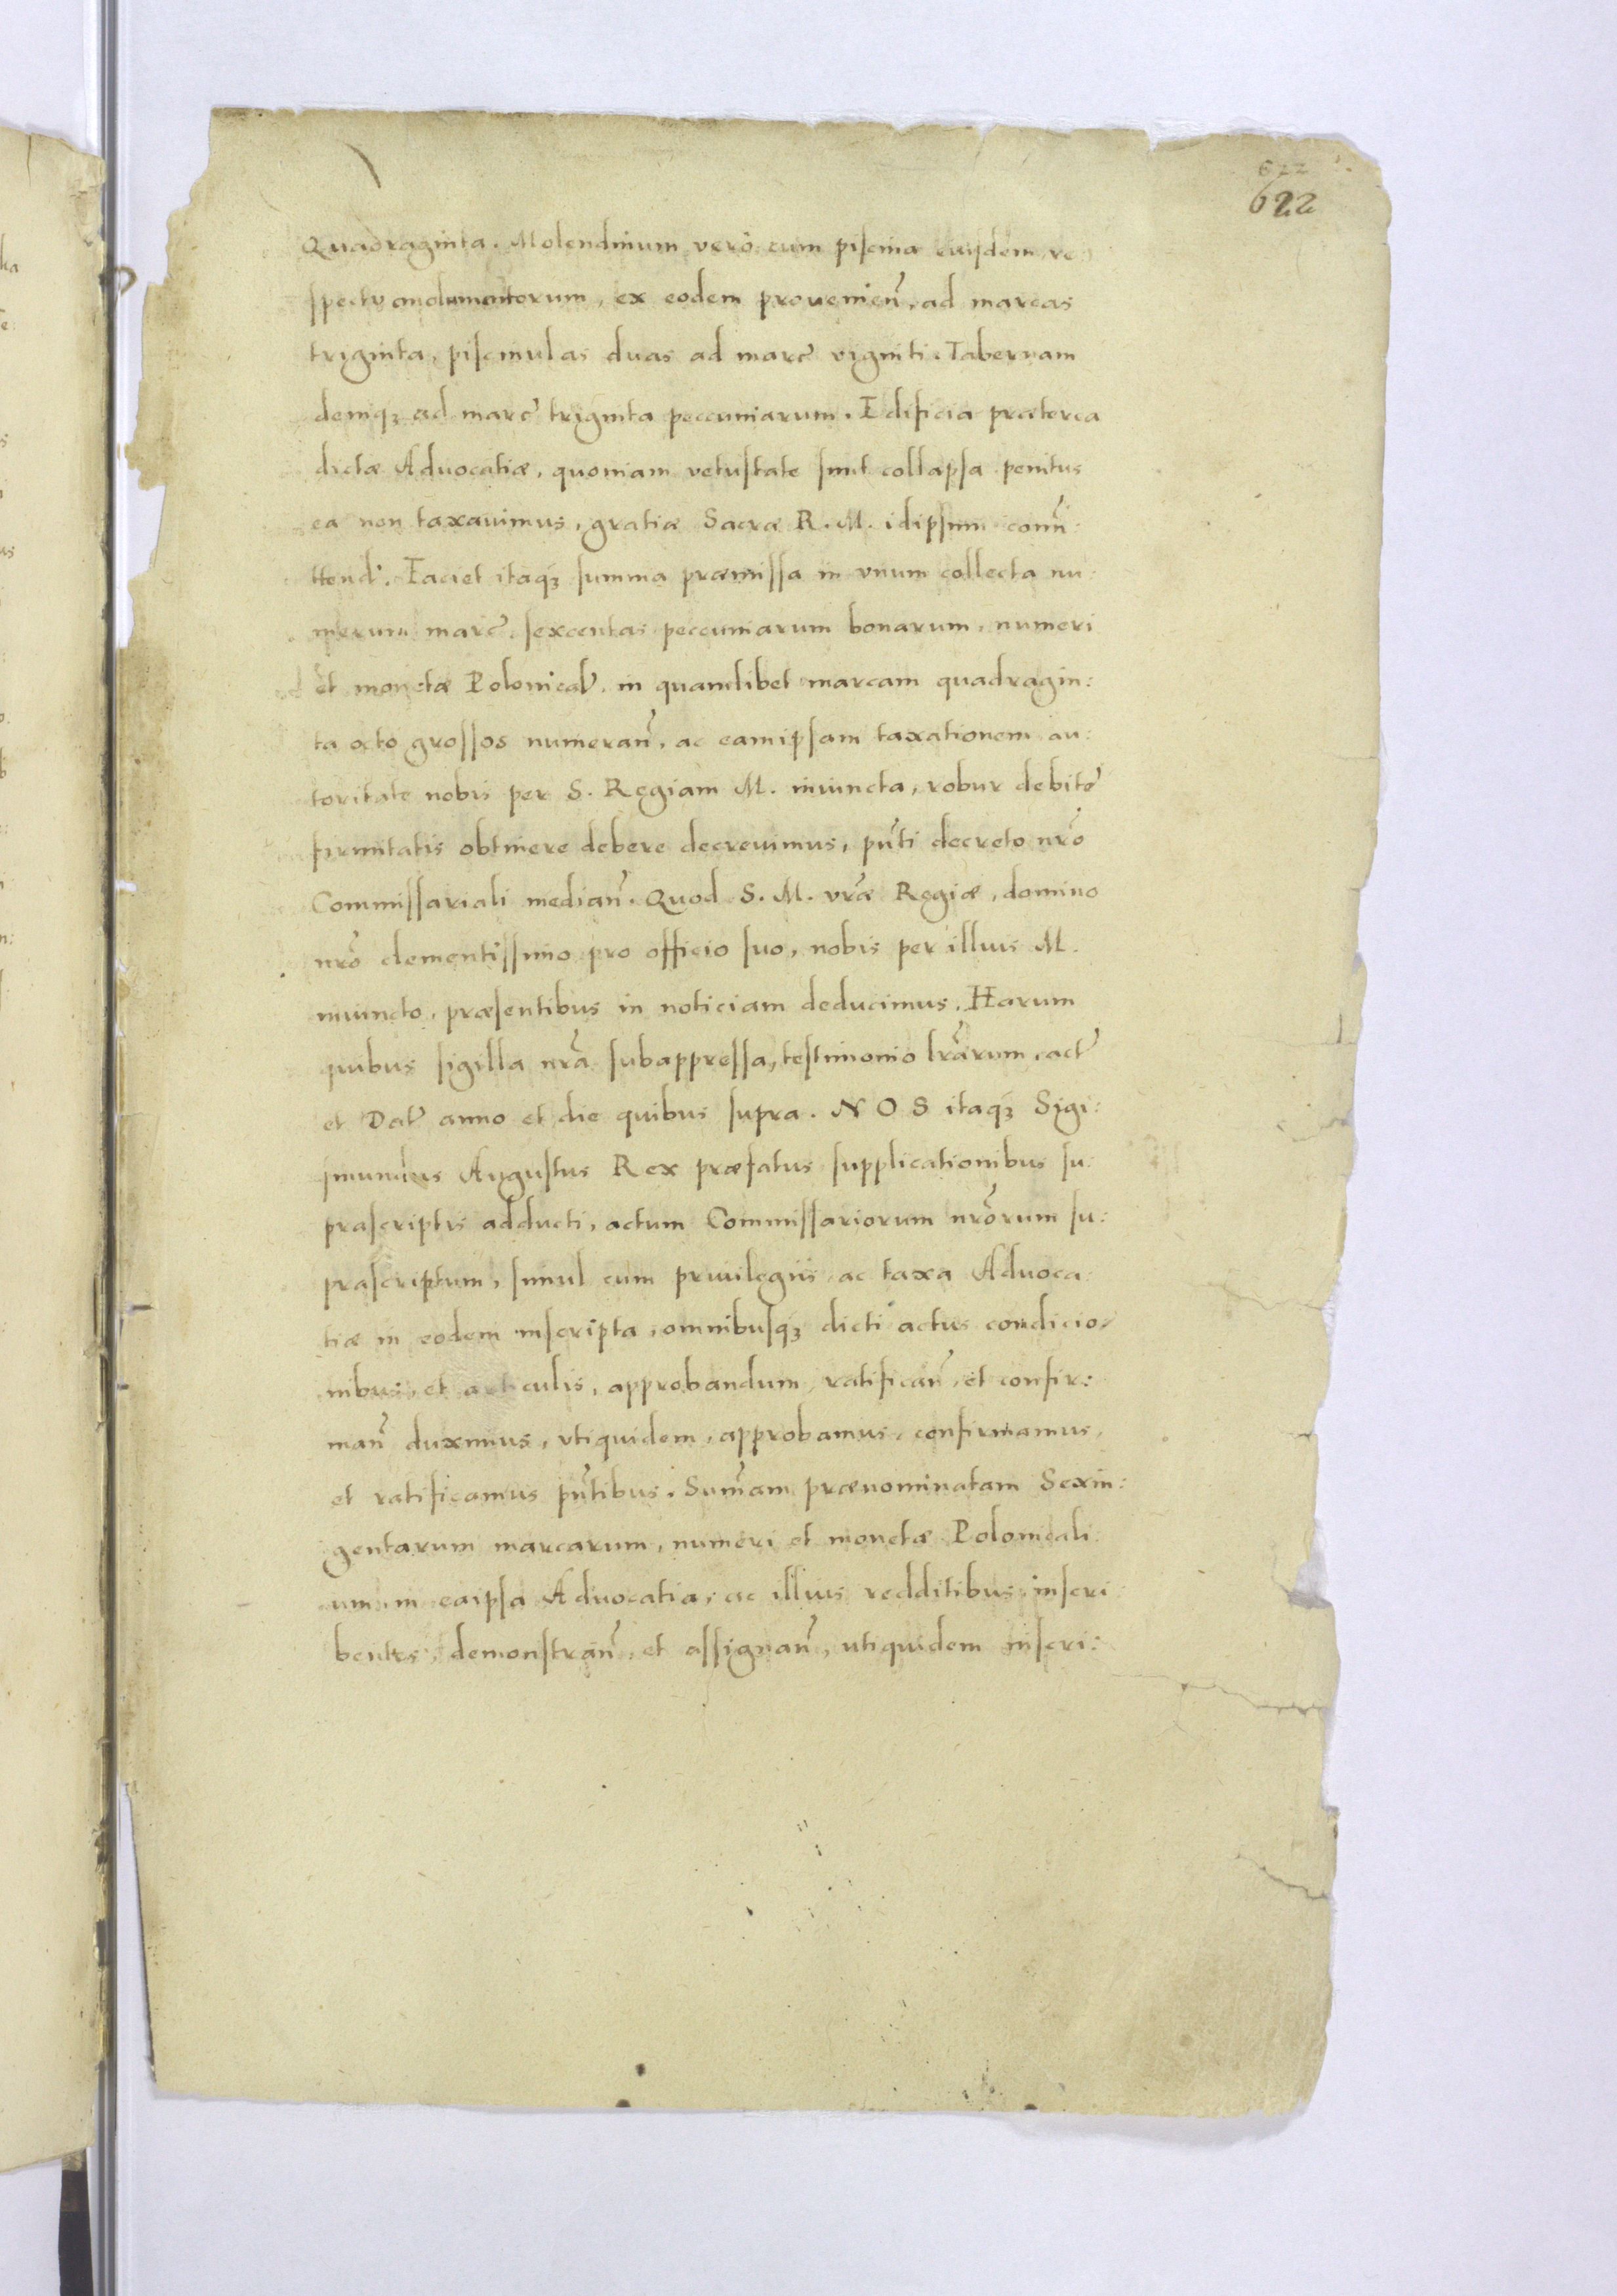 622
622
Quadraginta. Molendinum verò cum piscina eiusdem re:
spectu emolumentorum, ex eodem prouenien̄, ad marcas
triginta, piscinulas duas ad marc̄ viginti. Tabernam
demqꝫ ad marc̄ triginta peccuniarum. Edificia præterea
dictæ Aduocatiæ, quoniam vetustate sunt collapsa penitus
ea non taxauimus, gratiæ Sacræ R. M. idipsum com̄i:
ttend. Faciet itaqꝫ summa præmissa in vnum collecta nu:
merum marc̄. sexcentas peccuniarum bonarum, numeri
et monetæ Polonical̄. in quamlibet marcam quadragin:
ta octo grossos numeran̄, ac eamipsam taxationem au:
toritate nobis per S. Regiam M. iniuncta, robur debitȩ
firmitatis obtinere debere decreuimus, pn̄ti decreto nr̄o
Commissariali median̄. Quod S. M. vr̄æ Regiæ, domino
nr̄o clementissimo pro officio suo, nobis per illius M.
iniuncto, præsentibus in noticiam deducimus. Harum
quibus sigilla nr̄a subappressa, testimonio lr̄arum, act̄
et Dat̄ anno et die quibus supra. NOS itaqꝫ Sigi:
smundus Augustus Rex præfatus supplicationibus su:
prascriptis adducti, actum Commissariorum nr̄orum su:
prascriptum, simul cum priuilegiis ac taxa Aduoca:
tiæ in eodem inscripta, omnibusqꝫ dicti actus condicio
nibus, et articulis, approbandum, ratifican̄, et confir:
man̄ duximus, vtiquidem, approbamus, confirmamus,
et ratificamus pn̄tibus. Sum̄am prænominatam Sexin:
gentarum marcarum, numeri et monetæ Polonicali
um in eaipsa Aduocatia, ac illius redditibus inscri
bentes, demonstran̄, et assignan̄, utiquidem inscri: